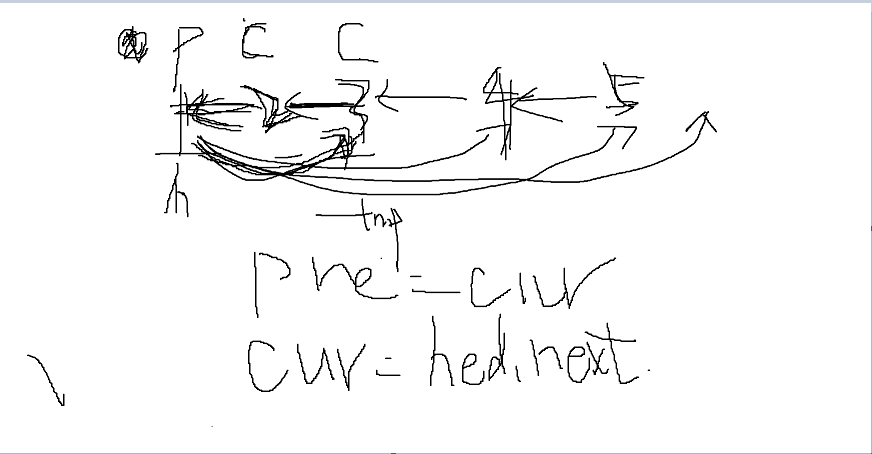 P C C
1 2 3 4 5
h
tmp
pre = cur
cur = hed.next.